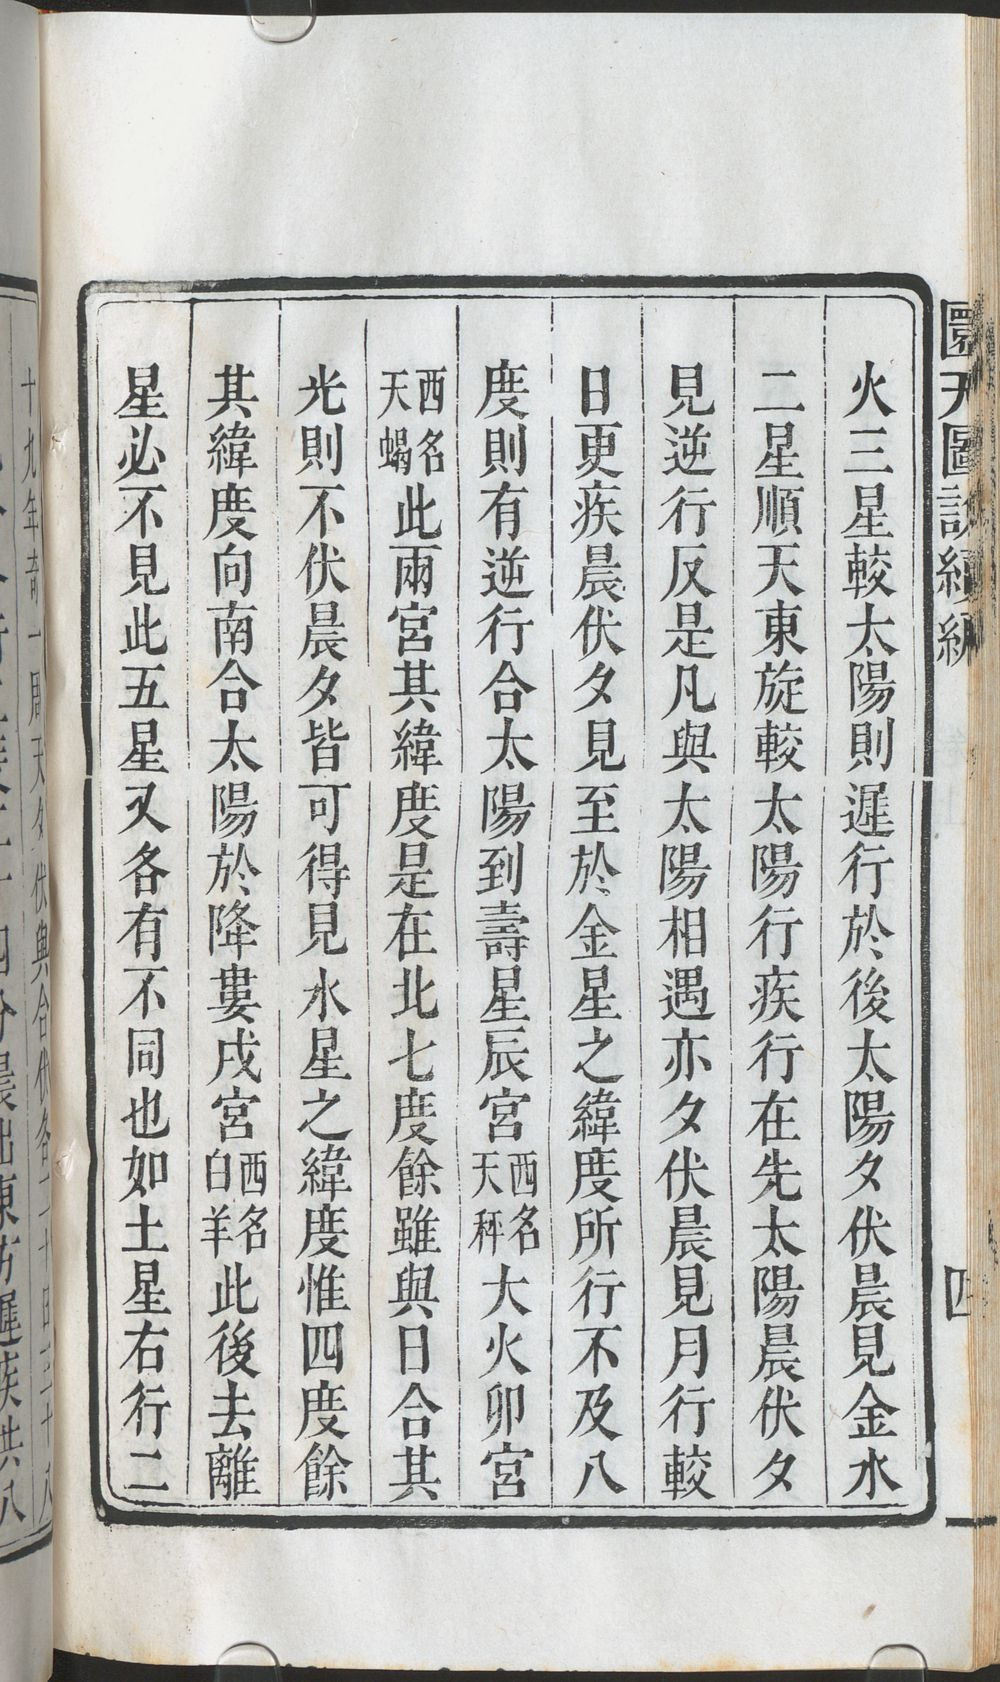 火三星較太陽則遲行於後太陽夕伏晨見金水
二星順天東旋較太陽行疾行在先太陽晨伏夕
見逆行反是凡與太陽相遇亦夕伏晨見月行較
日更疾晨伏夕見至於金星之緯度所行不及八
度則有逆行合太陽到壽星辰宮西名天秤大火卯宮
西名天蝎此兩宮其緯度是在北七度餘雖與日合其
光則不伏晨夕皆可得見水星之緯度惟四度餘
其緯度向南合太陽於降婁戌宮西名白羊此後去離
星必不見此五星又各有不同也如土星右行二
圜天圖說續編
四
十九年奇一周天夕伏與合伏各二十
晨出東方遲疾共八